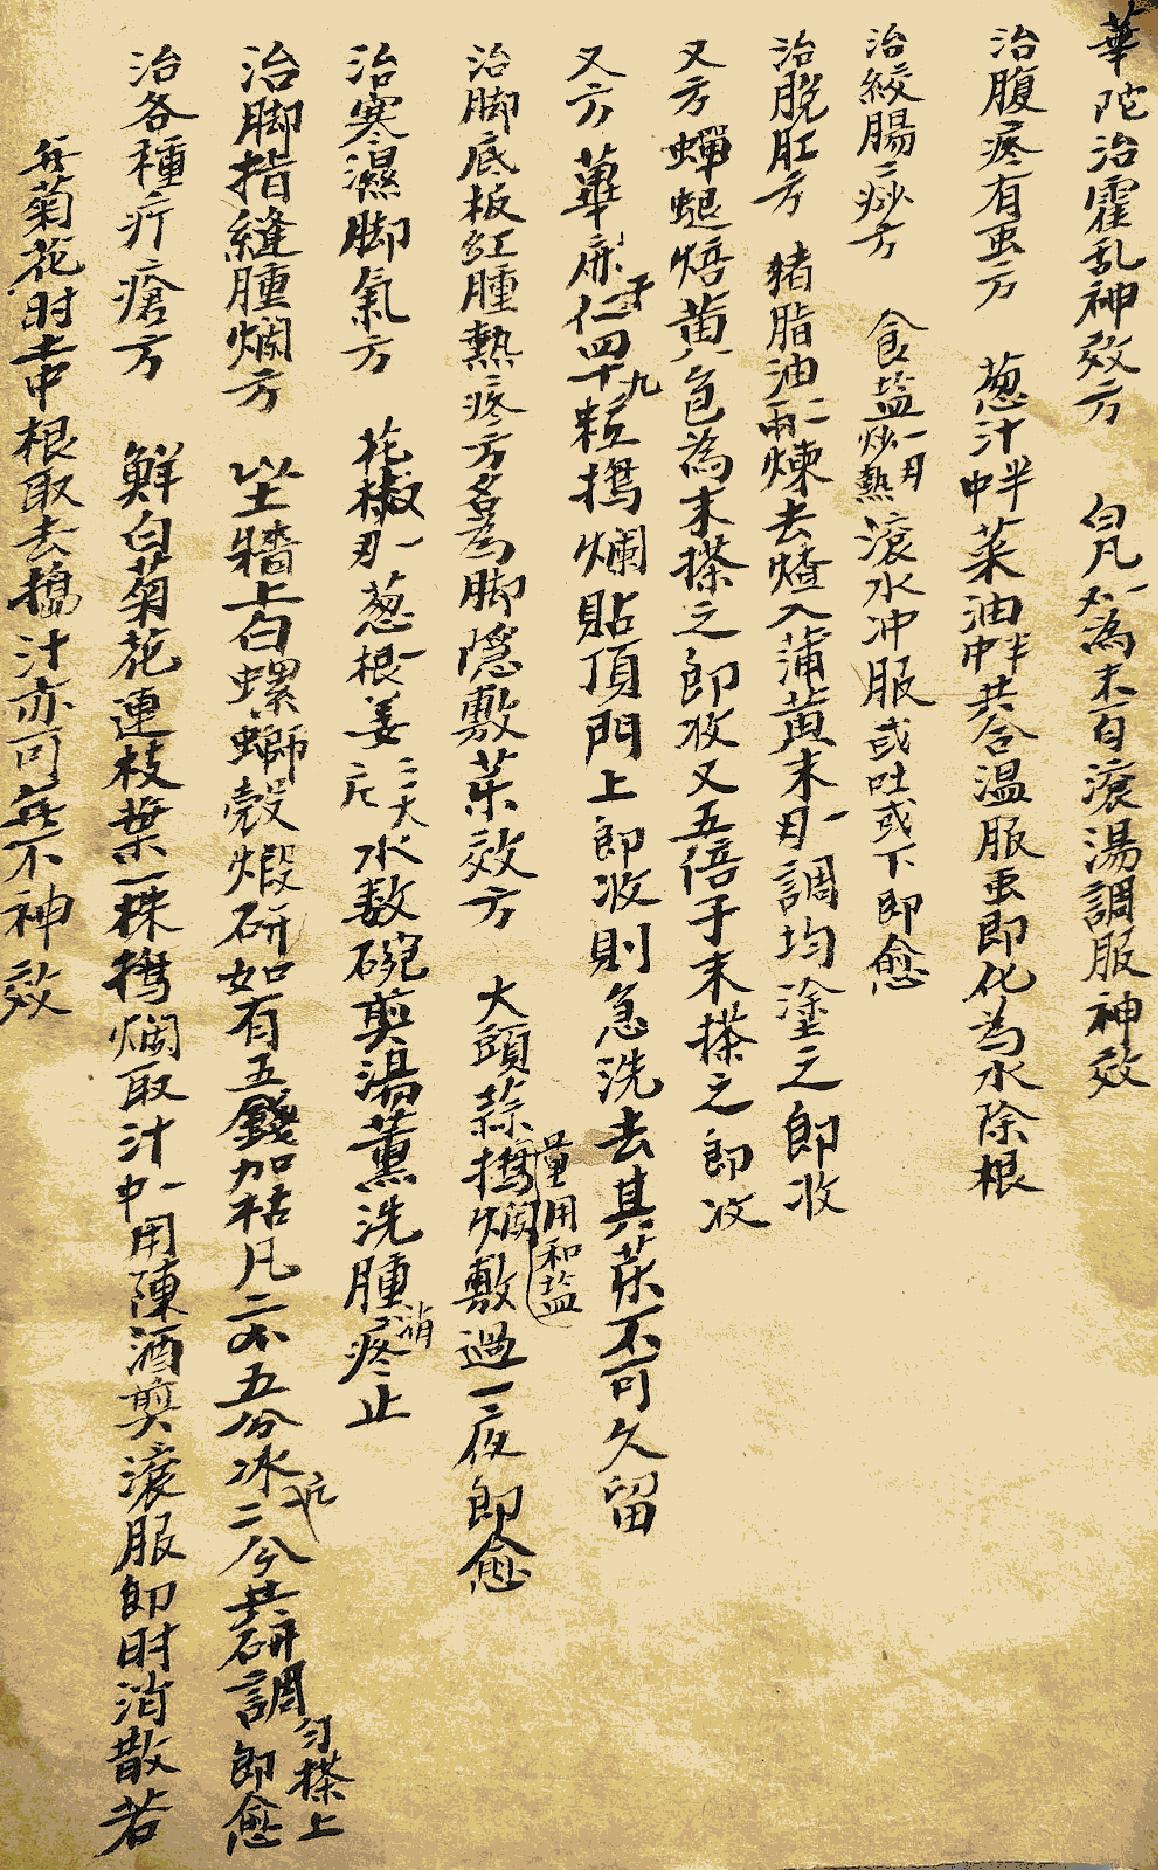 華陀治霍乱神效方 白凡為末百滾湯調服神效
治腹疼有虫方 葱汁半中菜油半中共合温服虫即化為水除根
治絞腸痧方 食盐一兩炒熱滾水冲服或吐或下即愈
治脫肛方 猪脂油二兩煉去渣入蒲黄末一兩調均塗之即收
又方蟬蜕焙黄色為末搽之即收又五倍子末搽之即收
又方 蓽麻子仁四十九粒搗爛貼頂門上即收則急洗去其药不可久留
治脚底板红腫熱疼方名為脚隱敷药效方 大頭蒜搗爛敷過一夜即愈
量用和盐
治寒濕脚氣方 花椒一兩葱根姜水数碗煎湯薰洗腫消疼止
治脚指縫腫爛方 土牆上白螺螄殼煅研如有五錢加枯凡二个五分冰片二分共研調匀搽上即愈
治各種疔瘡方 鮮白菊花連枝葉一株搗爛取汁一中用陳酒煎滾服即时消散若
無菊花时土中根取去搗汁亦可無不神效